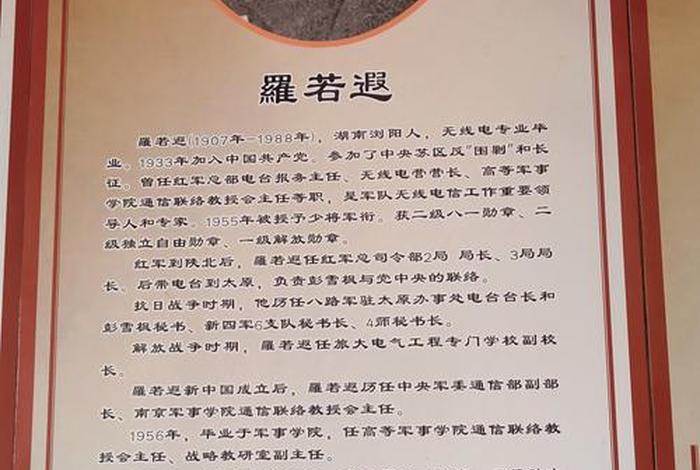 羅若遐
羅若遐(1907年-1988年)，湖南浏阳人，无线电专业毕
业。1933年加入中国共产党。参加了中央苏区反"围剿"和长
征。曾任红军总部电台报务主任、无线电营营长、高等军事
学院通信联络教授会主任等职，是军队无线电信工作重要领
导人和专家。1955年被授予少将军衔。获二级八一勋章、二
级独立自由勋章、一级解放勋章。
红军到陕北后，羅若遐任红军总司令部2局 局长、3局局
长。后带电台到太原，负责彭雪枫与党中央的联络。
抗日战争时期，他历任八路军驻太原办事处电台台长和
彭雪枫秘书、新四军6支队秘书长、4师秘书长。
解放战争时期，羅若遐任旅大电气工程专门学校副校
长。
羅若遐新中国成立后，羅若遐历任中央军委通信部副部
长、南京军事学院通信联络教授会主任。
1956年，毕业于军事学院，任高等军事学院通信联络教
授会主任、战略教研室副主任。